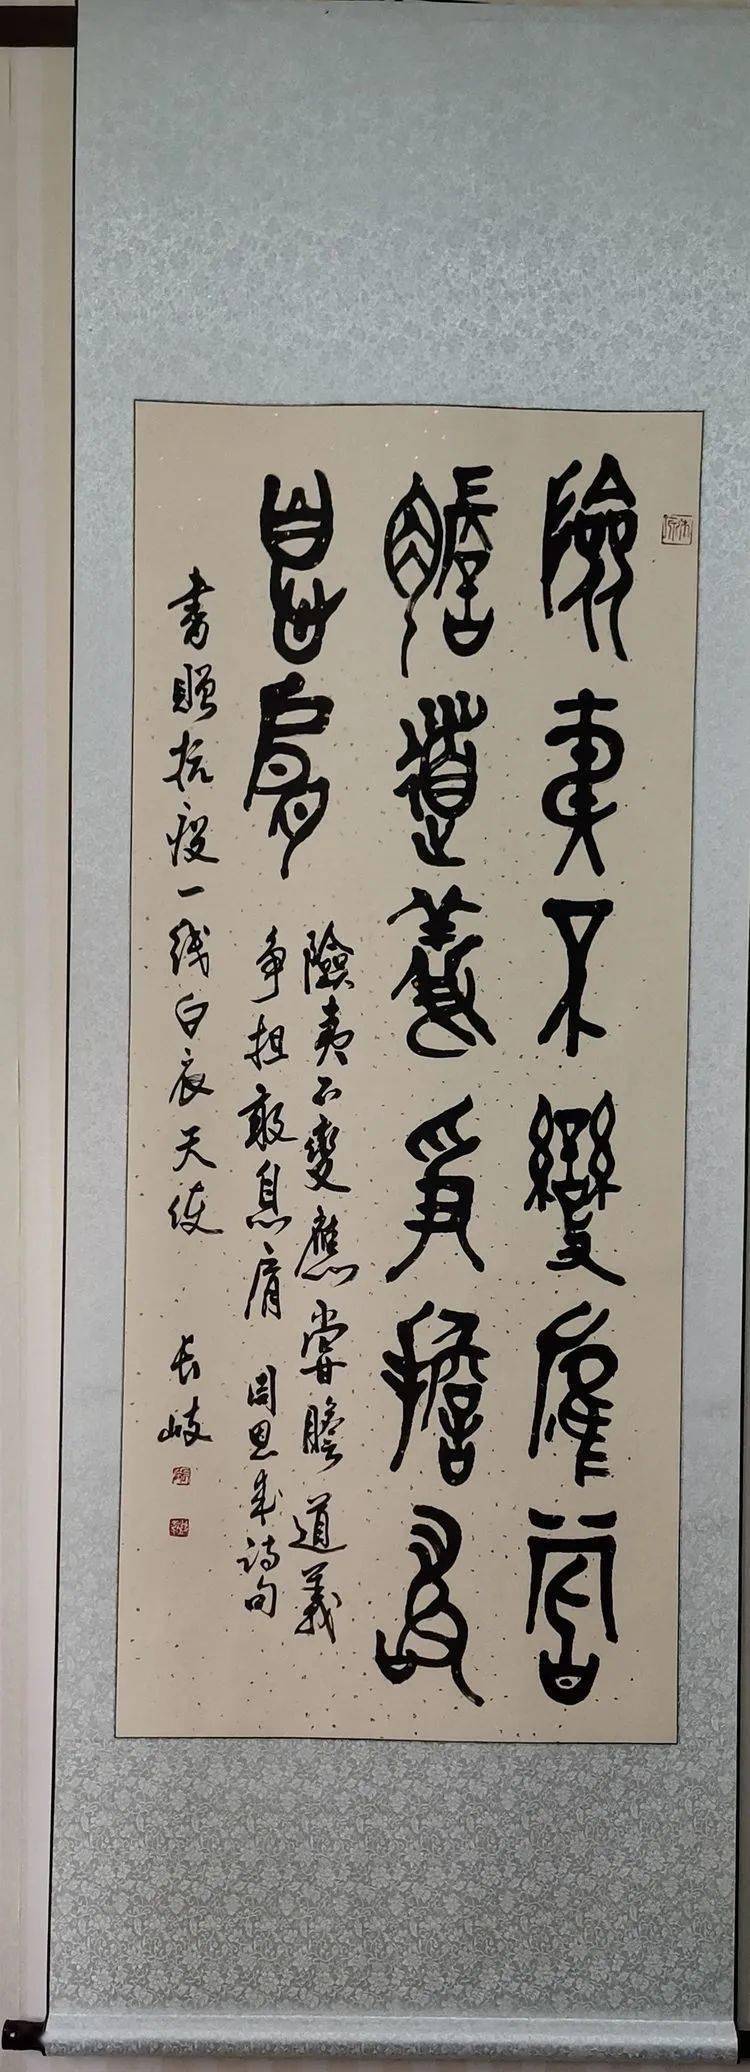 險夷不變應嘗
膽道義爭擔敢
息肩
險夷不變應嘗膽道義
争担敢息肩 周恩来诗句
書贈抗疫一线白衣天使
长岐